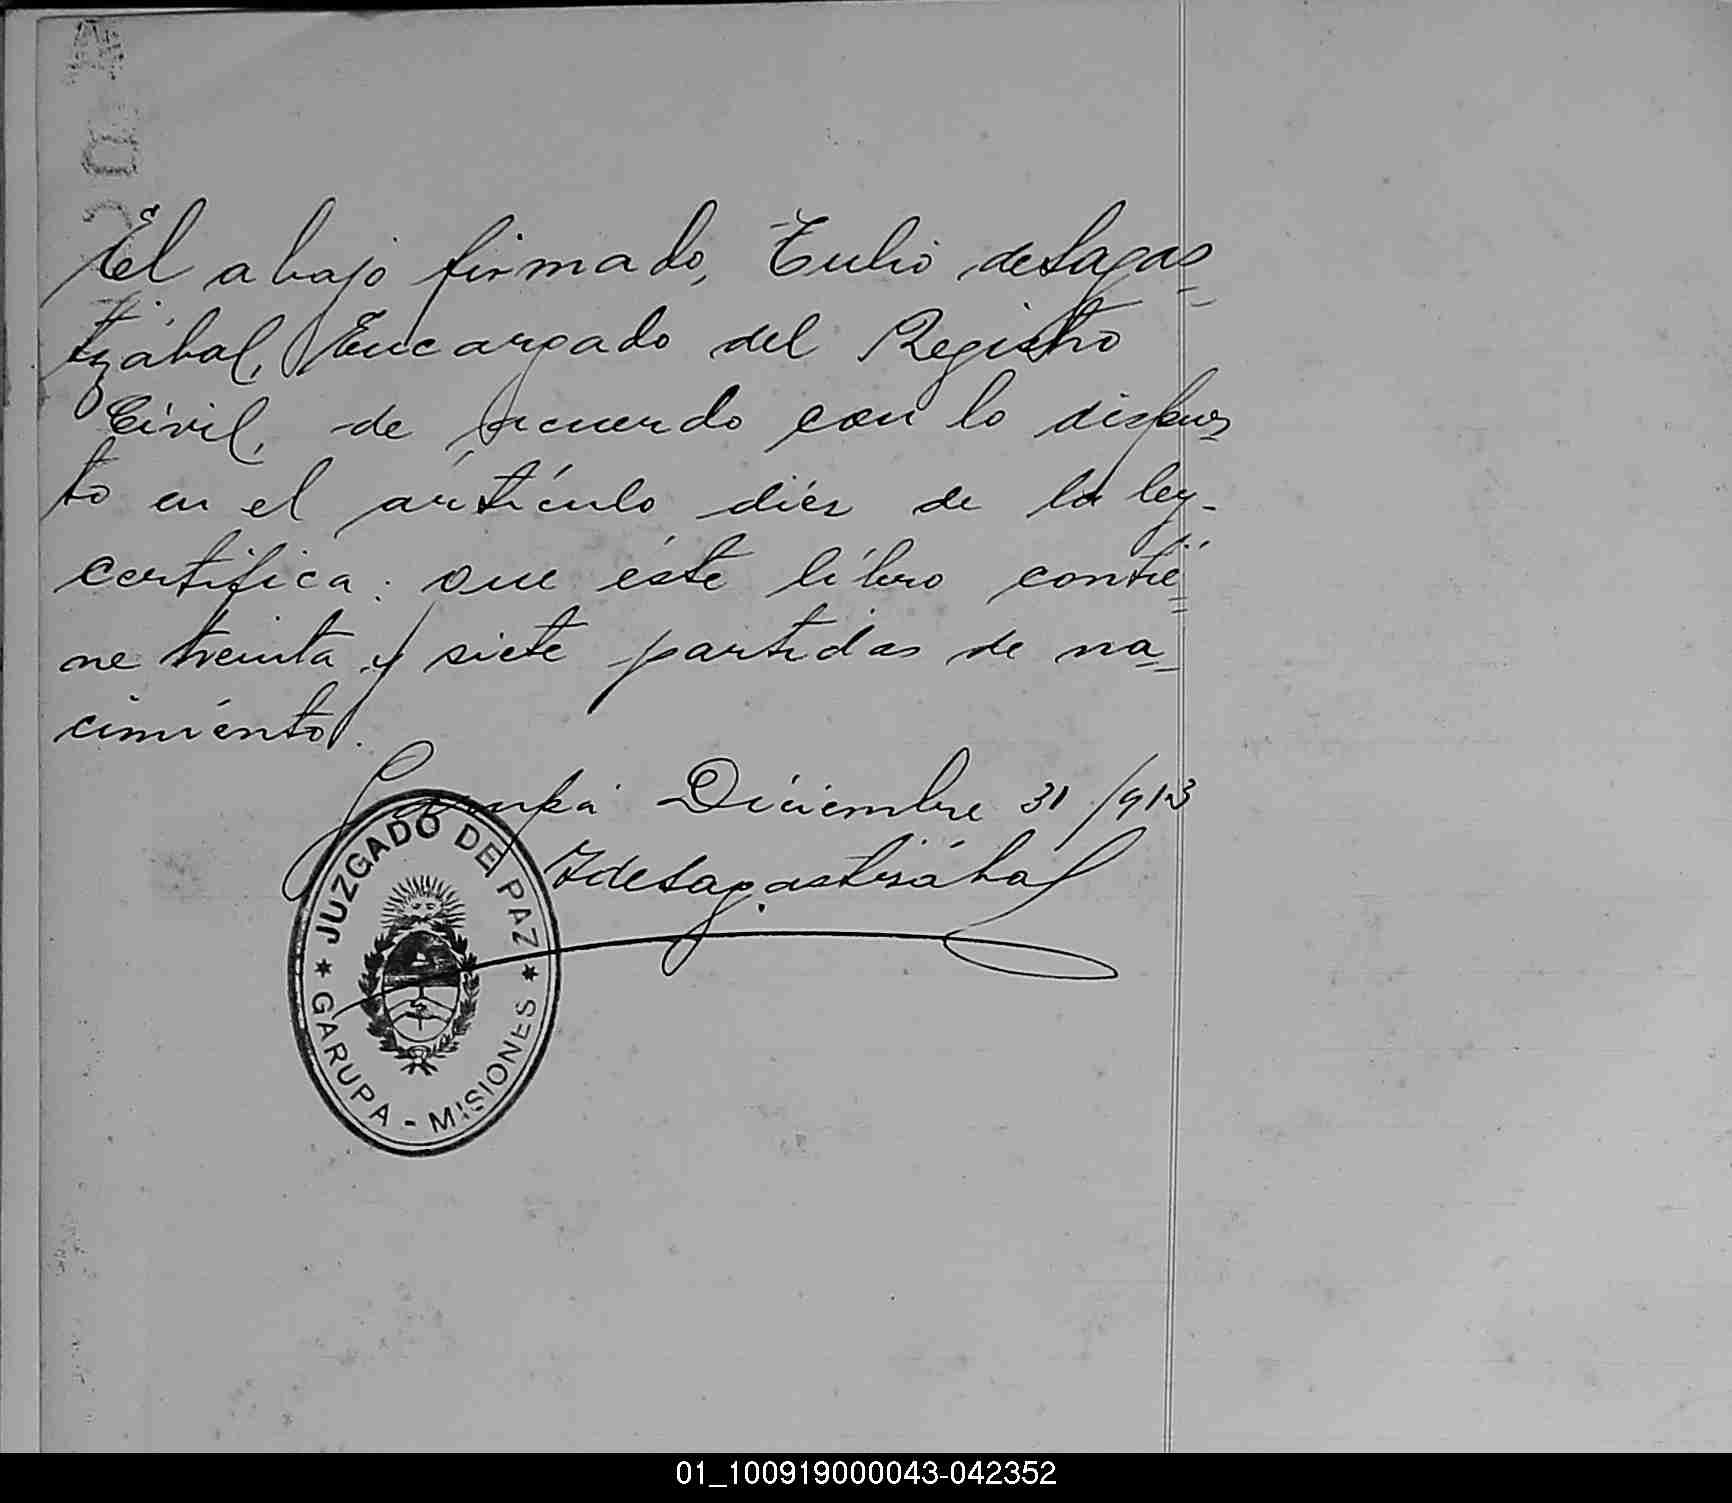 El abajo firmado, Tulio de Sagas=
tizábal, Encargado del Registro
Civil, de acuerdo con lo dispues
to en el artículo diéz de la ley-
certifica: que éste libro contie=
ne treinta y siete partidas de na=
cimiento.
Garupá Diciembre 31/913
TdeSagastizábal
JUZGADO DE PAZ
GARUPA - MISIONES
01_100919000043-042352